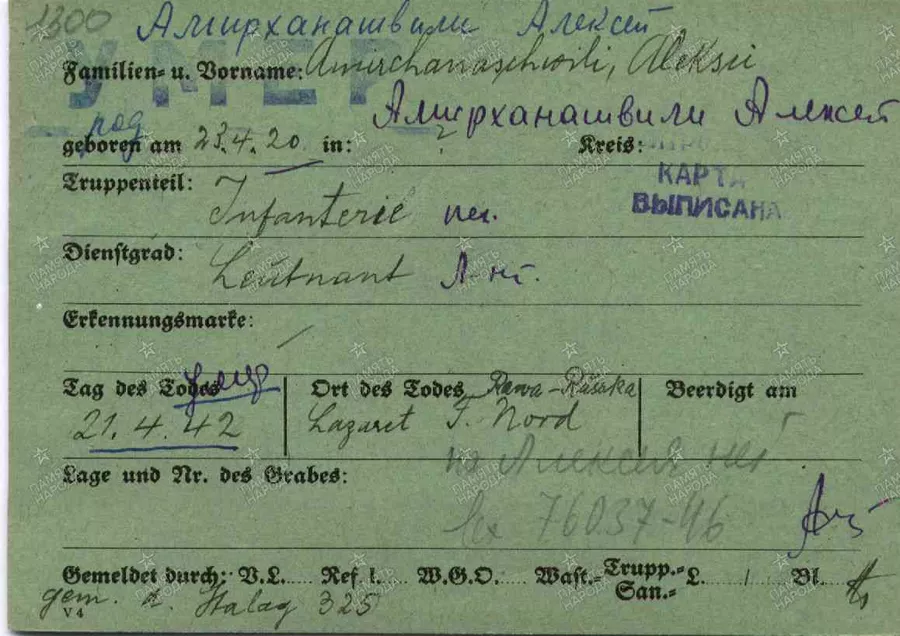 1300 Амирханашвили Алексей
УМЕР
Familien- u. Vorname: Amirchanaschwili, Aleksii
Амирханашвили Алексей
род
geboren am 23.4.20 in: ? Kreis:
КАРТА
ВЫПИСАНА
Truppenteil: Infanterie пех.
Dienstgrad: Leutnant Л-нт.
Erkennungsmarke: /
Tag des Todes умер Ort des Todes Rawa-Ruska Beerdigt am
21.4.42 Lazaret T. Nord
на Алексея нет
Lage und Nr. des Grabes:
Вх 76037-46
Gemeldet durch: V.L..... Ref l. .... W.G.O..... Wast.- Trupp.- San.- L. / Bl.
gem. d. Stalag 325
V 4